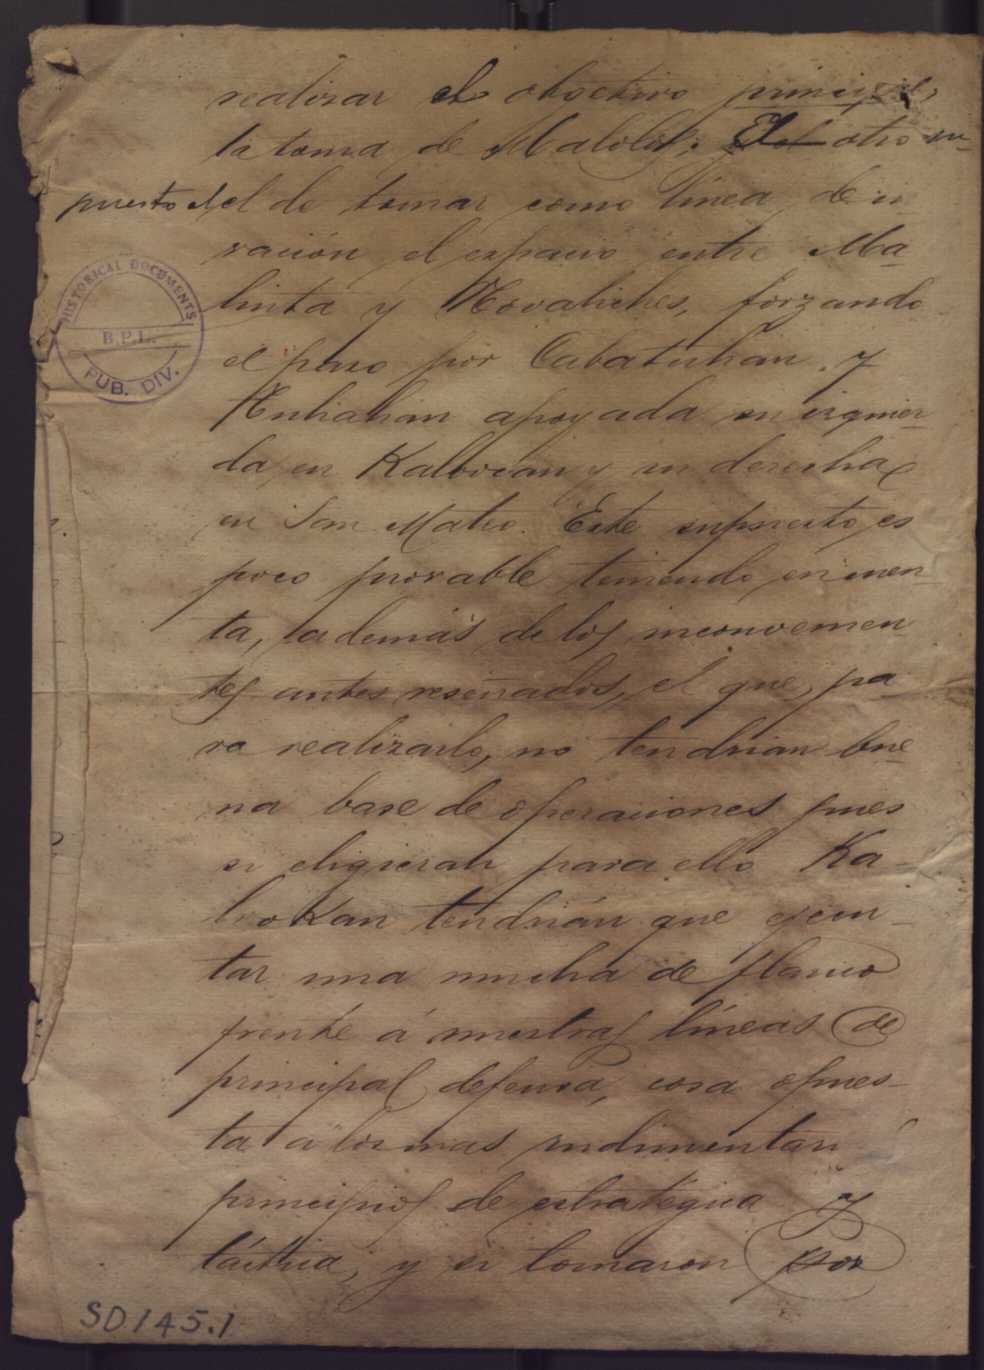 realizar el obgetivo principal,
la toma de Malolos. El otro su-
puesto el el de tomar como linea de in
vación el espacio entre Ma-
linta y Novaliches, forzando
el paso por Cabatuhan y
Tuliahan apoyada su izquier-
da en Kaloocan y su derecha
en San Mateo. Este supuesto es
poco provable teniendo en cuen-
ta, ademas de los inconvenien
tes antes reseñados, el que, pa
ra realizarlo, no tendrian bue
na base de operaciones pues
si eligieran para ello Ka-
lookan tendrián que ejecu-
tar una mucha de flanco
frente á nuestras líneas de
principal defensa, cosa opues-
ta a los mas rudimentari
principios de estrategica y
táctica, y si tomaron por
HISTORICAL DOCUMENTS
B.P.L.
PUB. DIV.
SD145.1